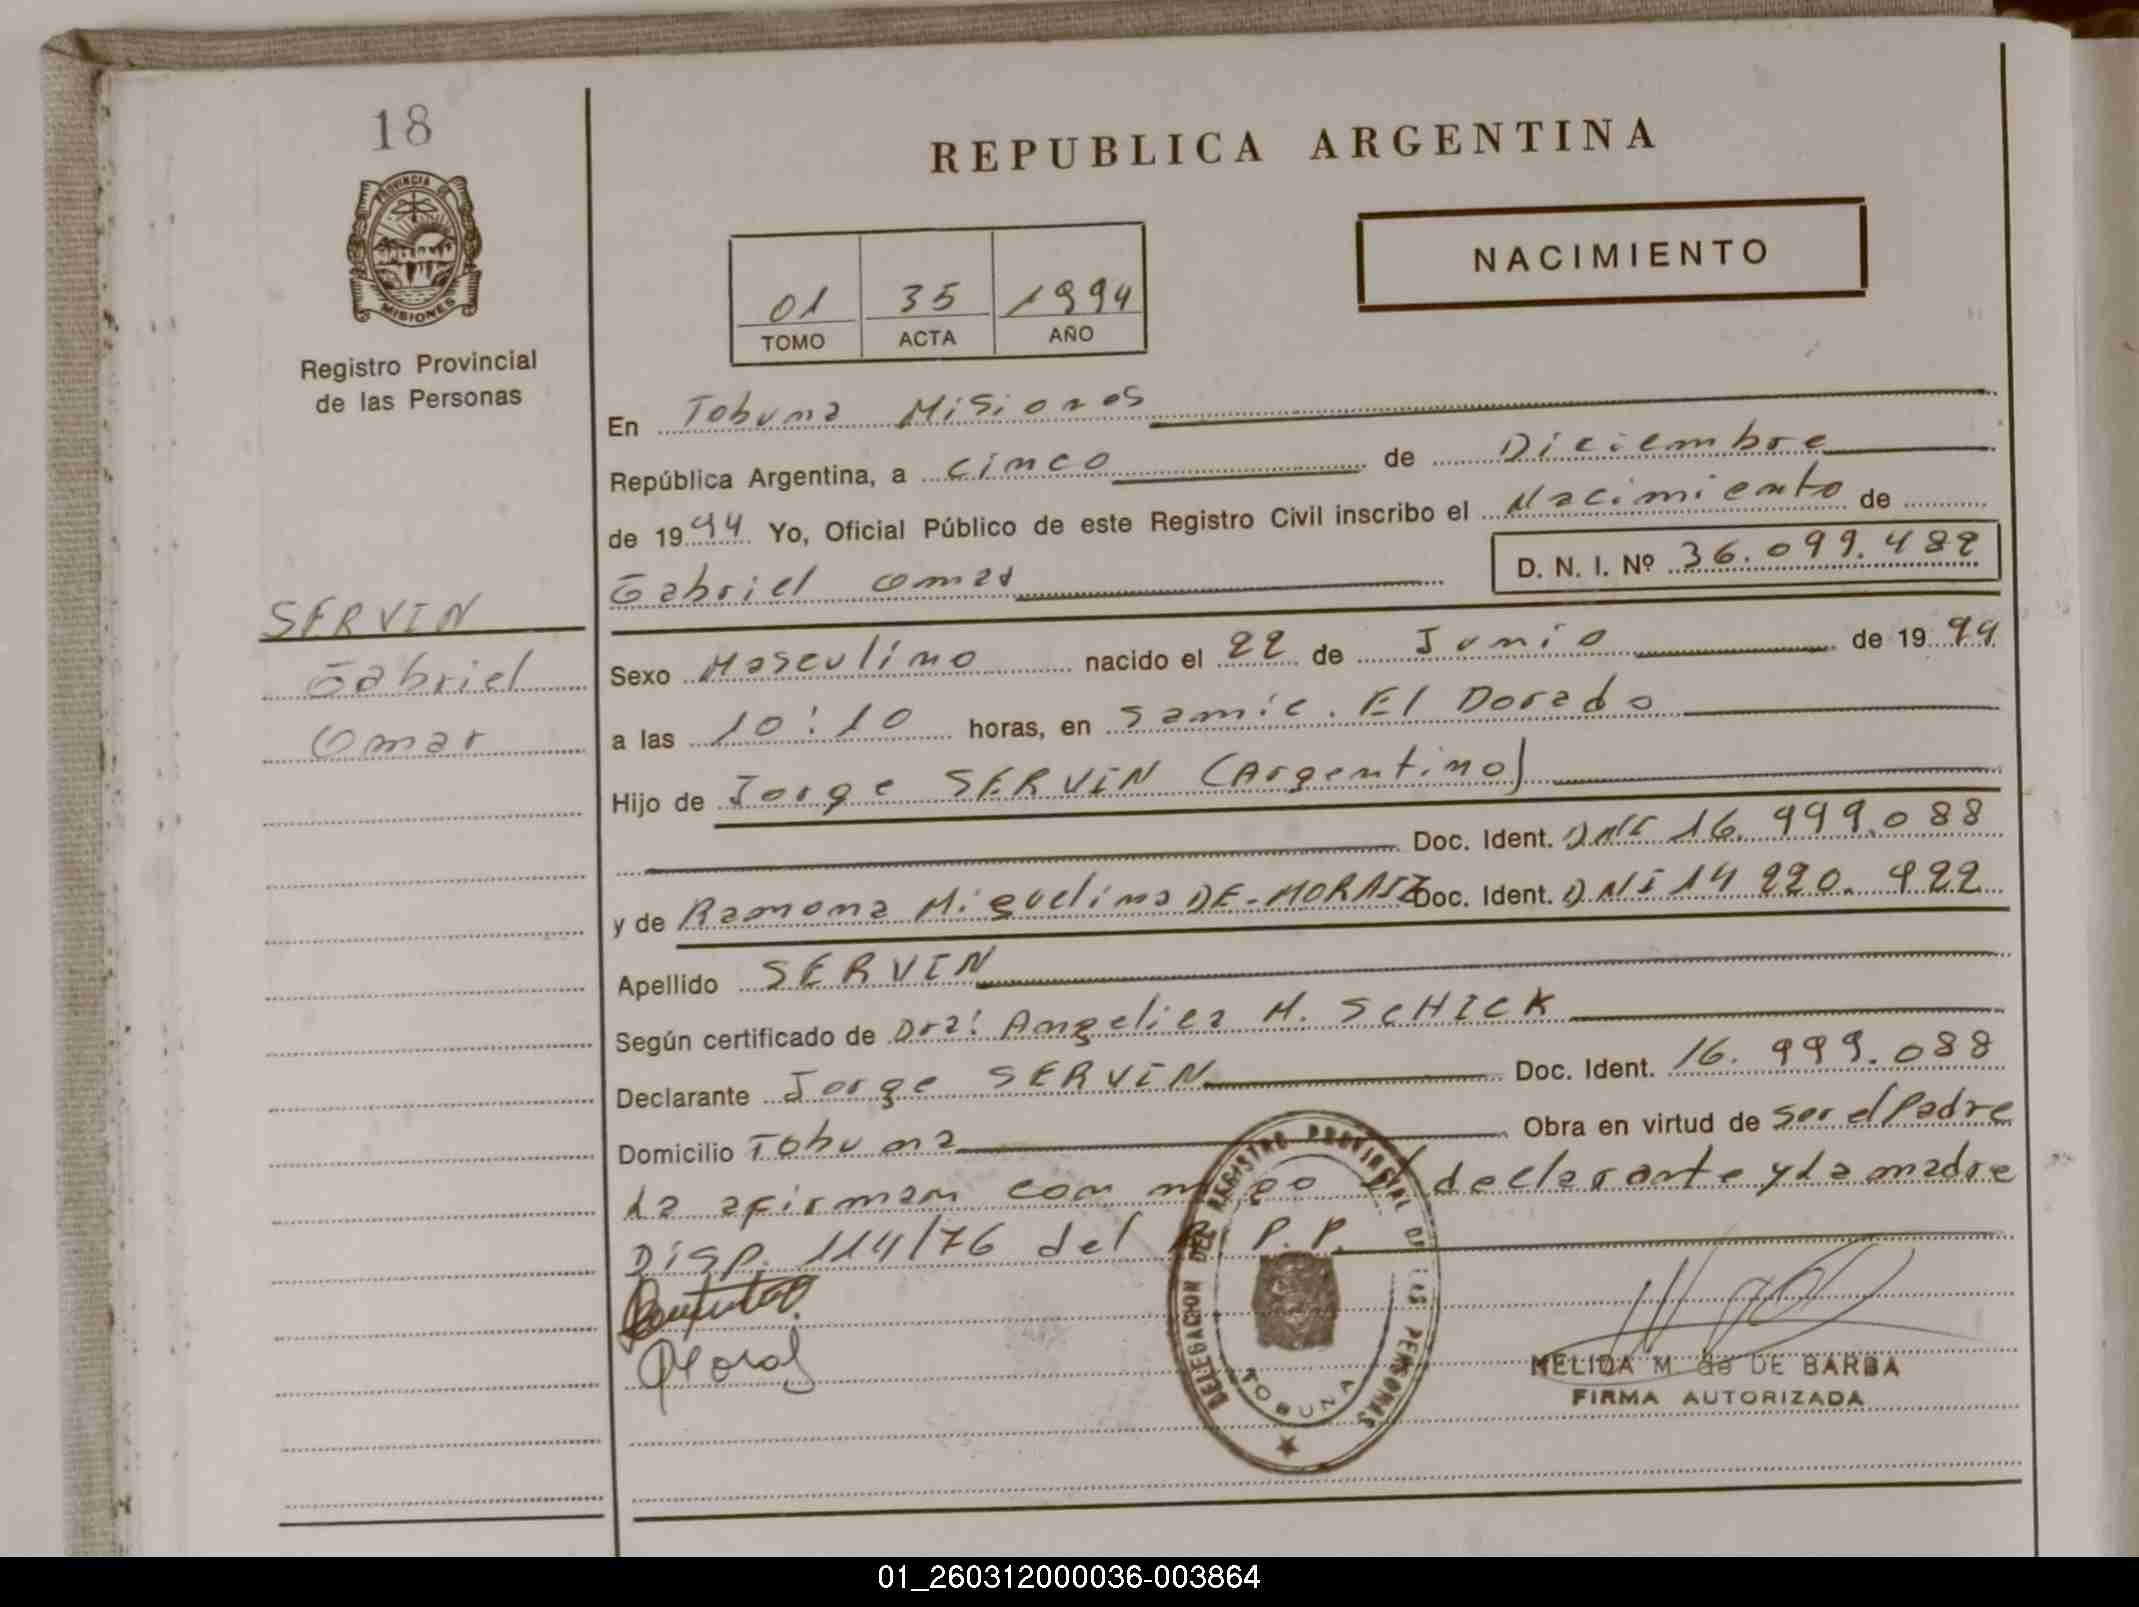 18
PROVINCIA DE
MISIONES
Registro Provincial
de las Personas
SERVIN
Gabriel
Omar
REPUBLICA ARGENTINA
NACIMIENTO
01 35 1994
TOMO ACTA AÑO
En Tobuna Misiones
República Argentina, a cinco de Diciembre
de 1994 Yo, Oficial Público de este Registro Civil inscribo el Nacimiento de
Gabriel Omar D. N. I. Nº 36.099.482
Sexo Masculino nacido el 22 de Junio de 1994
a las 10:10 horas, en Samic. El Dorado
Hijo de Jorge SERVIN (Argentino)
Doc. Ident. DNI 16.999.088
y de Ramona Miguelina DE-MORAIZ Doc. Ident. DNI 14 220.922
Apellido SERVIN
Según certificado de Dra: Angelica M. SCHICK
Declarante Jorge SERVIN Doc. Ident. 16.999.088
Domicilio Tobuna Obra en virtud de ser el Padre
La afirman con migo el declarante y La madre
DISP. 114/76 del R. P. P.
DELEGACION DEL REGISTRO PROVINCIAL DE LAS PERSONAS
TOBUNA
NELIDA M. de DE BARBA
FIRMA AUTORIZADA
01_260312000036-003864